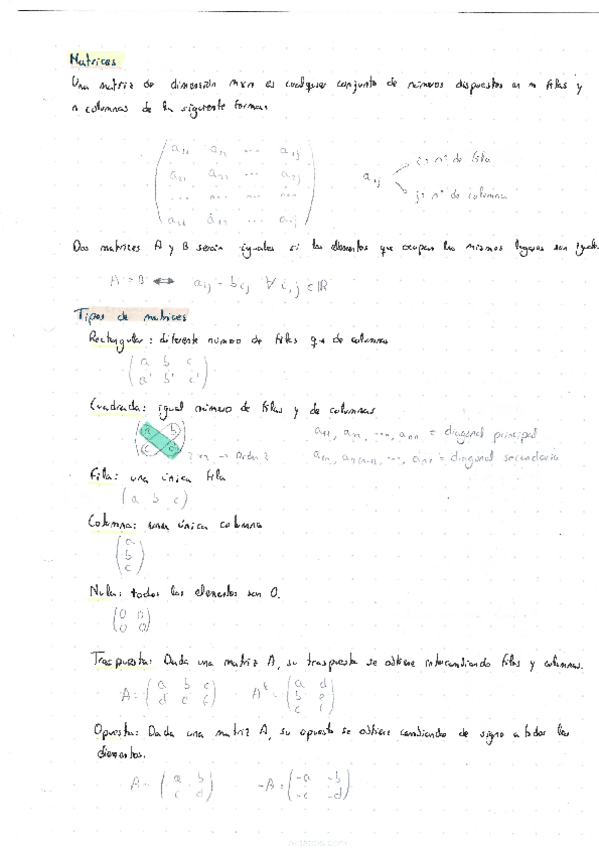 Matrices
Una matriz de dimensión mxn es cualquier conjunto de números dispuestos en m filas y
n columnas de la siguiente forma:
a₁₁ a₁₂ ... a₁j
a₂₁ a₂₂ ... a₂j
... ... ... ...
aᵢj
aᵢj
i: nº de fila
j: nº de columna
Dos matrices A y B serán iguales si los elementos que ocupan los mismos lugares son iguales.
A = B ⟷ aᵢj = bᵢj ∀ i, j ∈ ℝ
Tipos de matrices
Rectangular: diferente número de filas que de columnas
( a b c )
( a' b' c' )
Cuadrada: igual número de filas y de columnas
( a b )
( c d ) 2x2 → Orden 2
a₁₁, a₂₂, ..., aₙₙ = diagonal principal
= diagonal secundaria
Fila: una única fila
( a b c )
Columna: una única columna
( a )
( b )
( c )
Nula: todos los elementos son 0.
( 0 0 )
( 0 0 )
Traspuesta: Dada una matriz A, su traspuesta se obtiene intercambiando filas y columnas.
A = ( a b c ) Aᵗ = ( a d )
( d e f ) ( b e )
( c f )
Opuesta: Dada una matriz A, su opuesta se obtiene cambiando de signo a todos los
elementos.
A = ( a b ) -A = ( -a -b )
( c d ) ( -c -d )